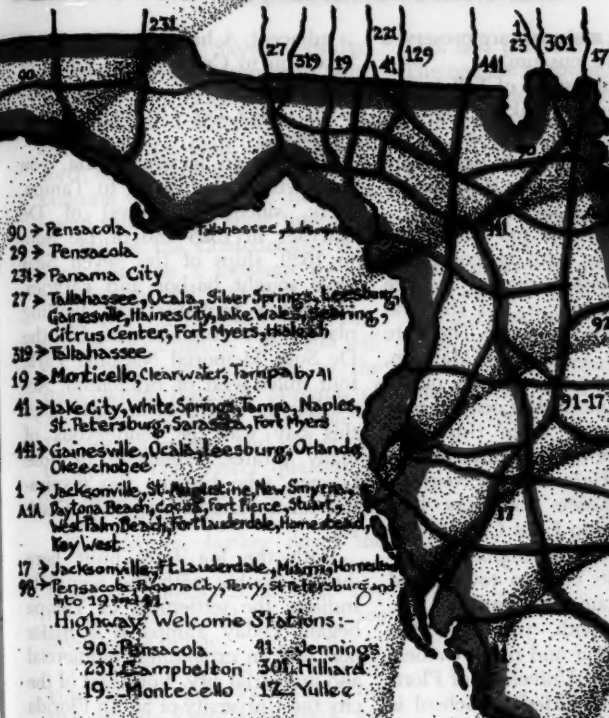 231
27
319
19
221
41
129
441
1
23
301
17
90
441
92
91-17
17
90 → Pensacola, Tallahassee,
29 → Pensacola
231 → Panama City
27 → Tallahassee, Ocala, Silver Springs, Leesburg,
Gainesville, Haines City, Lake Wales, Sebring,
Citrus Center, Fort Myers, Hialeah
319 → Tallahassee
19 → Monticello, Clearwater, Tampa by 41
41 → Lake City, White Springs, Tampa, Naples,
St. Petersburg, Sarasota, Fort Myers
441 → Gainesville, Ocala, Leesburg, Orlando,
Okeechobee
1 → Jacksonville, St. Augustine, New Smyrna,
A1A Daytona Beach, Cocoa, Fort Pierce, Stuart,
West Palm Beach, Fort Lauderdale, Homestead,
Key West
17 → Jacksonville, Ft Lauderdale, Miami, Homestead
98 → Pensacola, Panama City, Perry, St Petersburg and
into 19 and
Highway Welcome Stations:-
90-Pensacola 41-Jennings
231-Campbelton 301-Hilliard
19-Montecello 17-Yullee